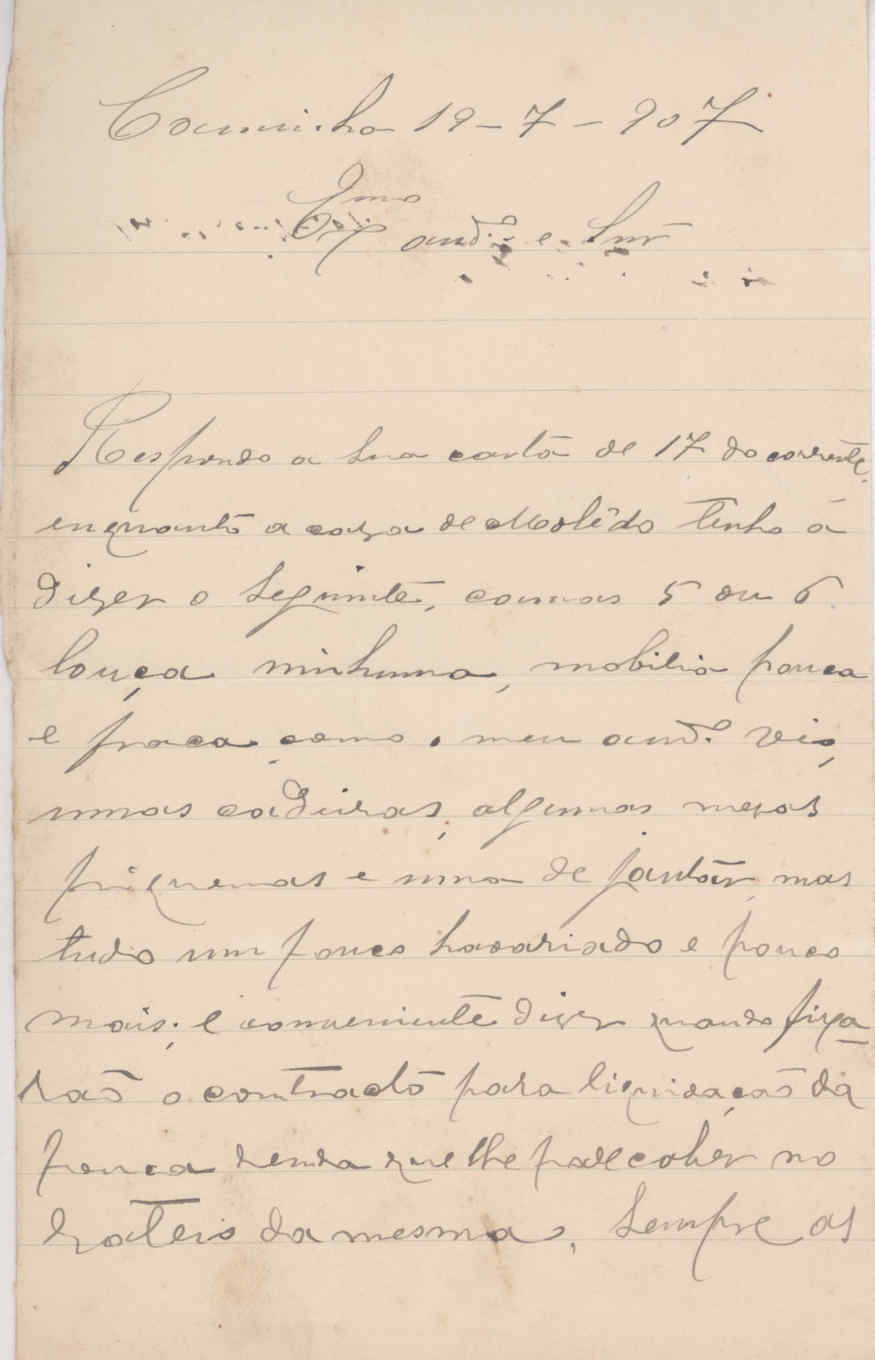 Caminha 19-7-907
Exmo
amo. e Snr
Respondo a sua carta de 17 do corrente,
enquanto a caza de Molêdo tenho a
dizer o seguinte, camas 5 ou 6.
louça ninhuma, mobilia pouca
e fraca como o meu amo. vio,
umas cadeiras, algumas mezas
piquenas e uma de jantar, mas
tudo um pouco havariado e pouco
mais; é conveniente dizer quando fiza-
raõ o contracto para liquidaçaõ da
pouca renda que lhe pode coher no
rateio da mesma, Sempre as